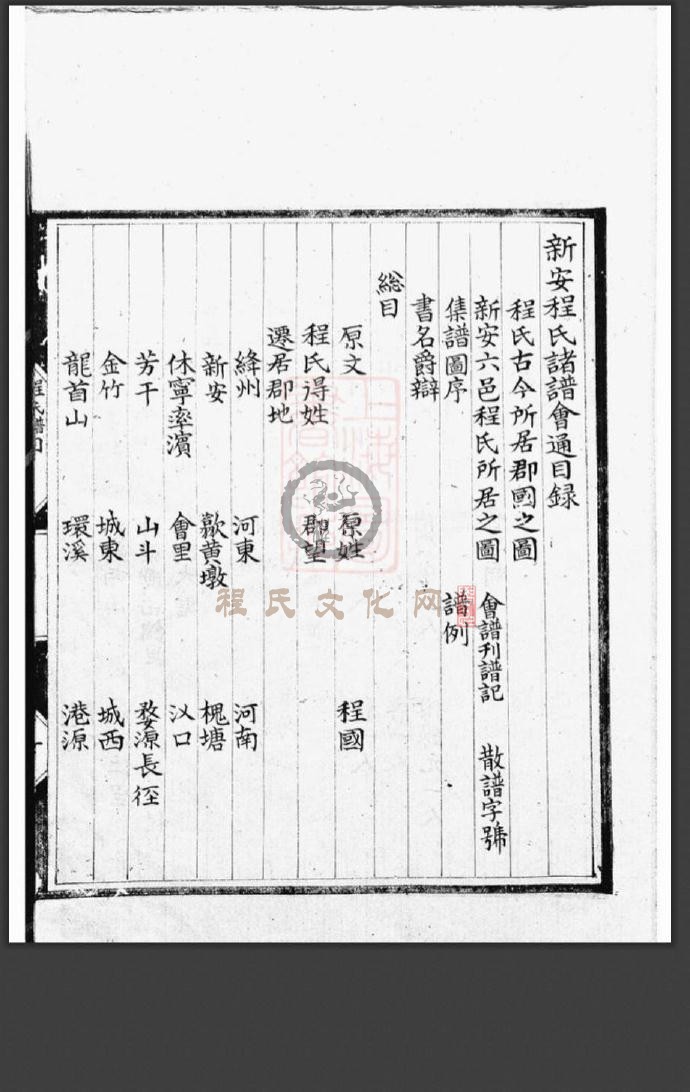 新安程氏諸譜會通目録
程氏古今所居郡國之圖
新安六邑程氏所居之圖 會譜刊譜記 散譜字號
集譜圖序 譜例
書名爵辯
総目
原文 原姓 程國
程氏得姓 郡望
遷居郡地
絳州 河東 河南
新安 歙黄墩 槐塘
休寧率濱 會里 汊口
芳干 山斗 婺源長徑
金竹 城東 城西
龍首山 環溪 港源
程氏文化网